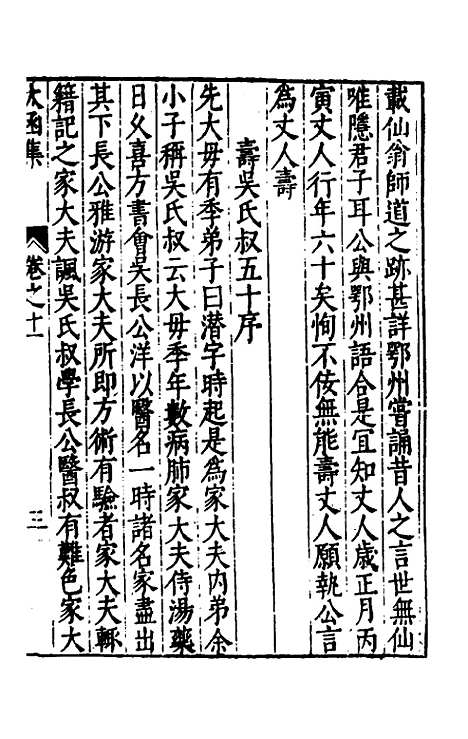 載仙翁師道之跡甚詳鄂州嘗誦昔人之言世無仙
唯隱君子耳公與鄂州語合是宜知丈人歲正月丙
寅丈人行年六十矣恂不佞無能壽丈人願執公言
為丈人壽
壽吳氏叔五十序
先大毋有季弟子曰潜字時起是為家大夫內弟余
小子稱吳氏叔云大毋季年數病肺家大夫侍湯藥
日久喜方書會吳長公洋以醫名一時諸名家盡出
其下長公雅游家大夫所即方術有驗者家大夫輒
籍記之家大夫諷吳氏叔學長公醫叔有難色家大
太函集
卷之十一
三